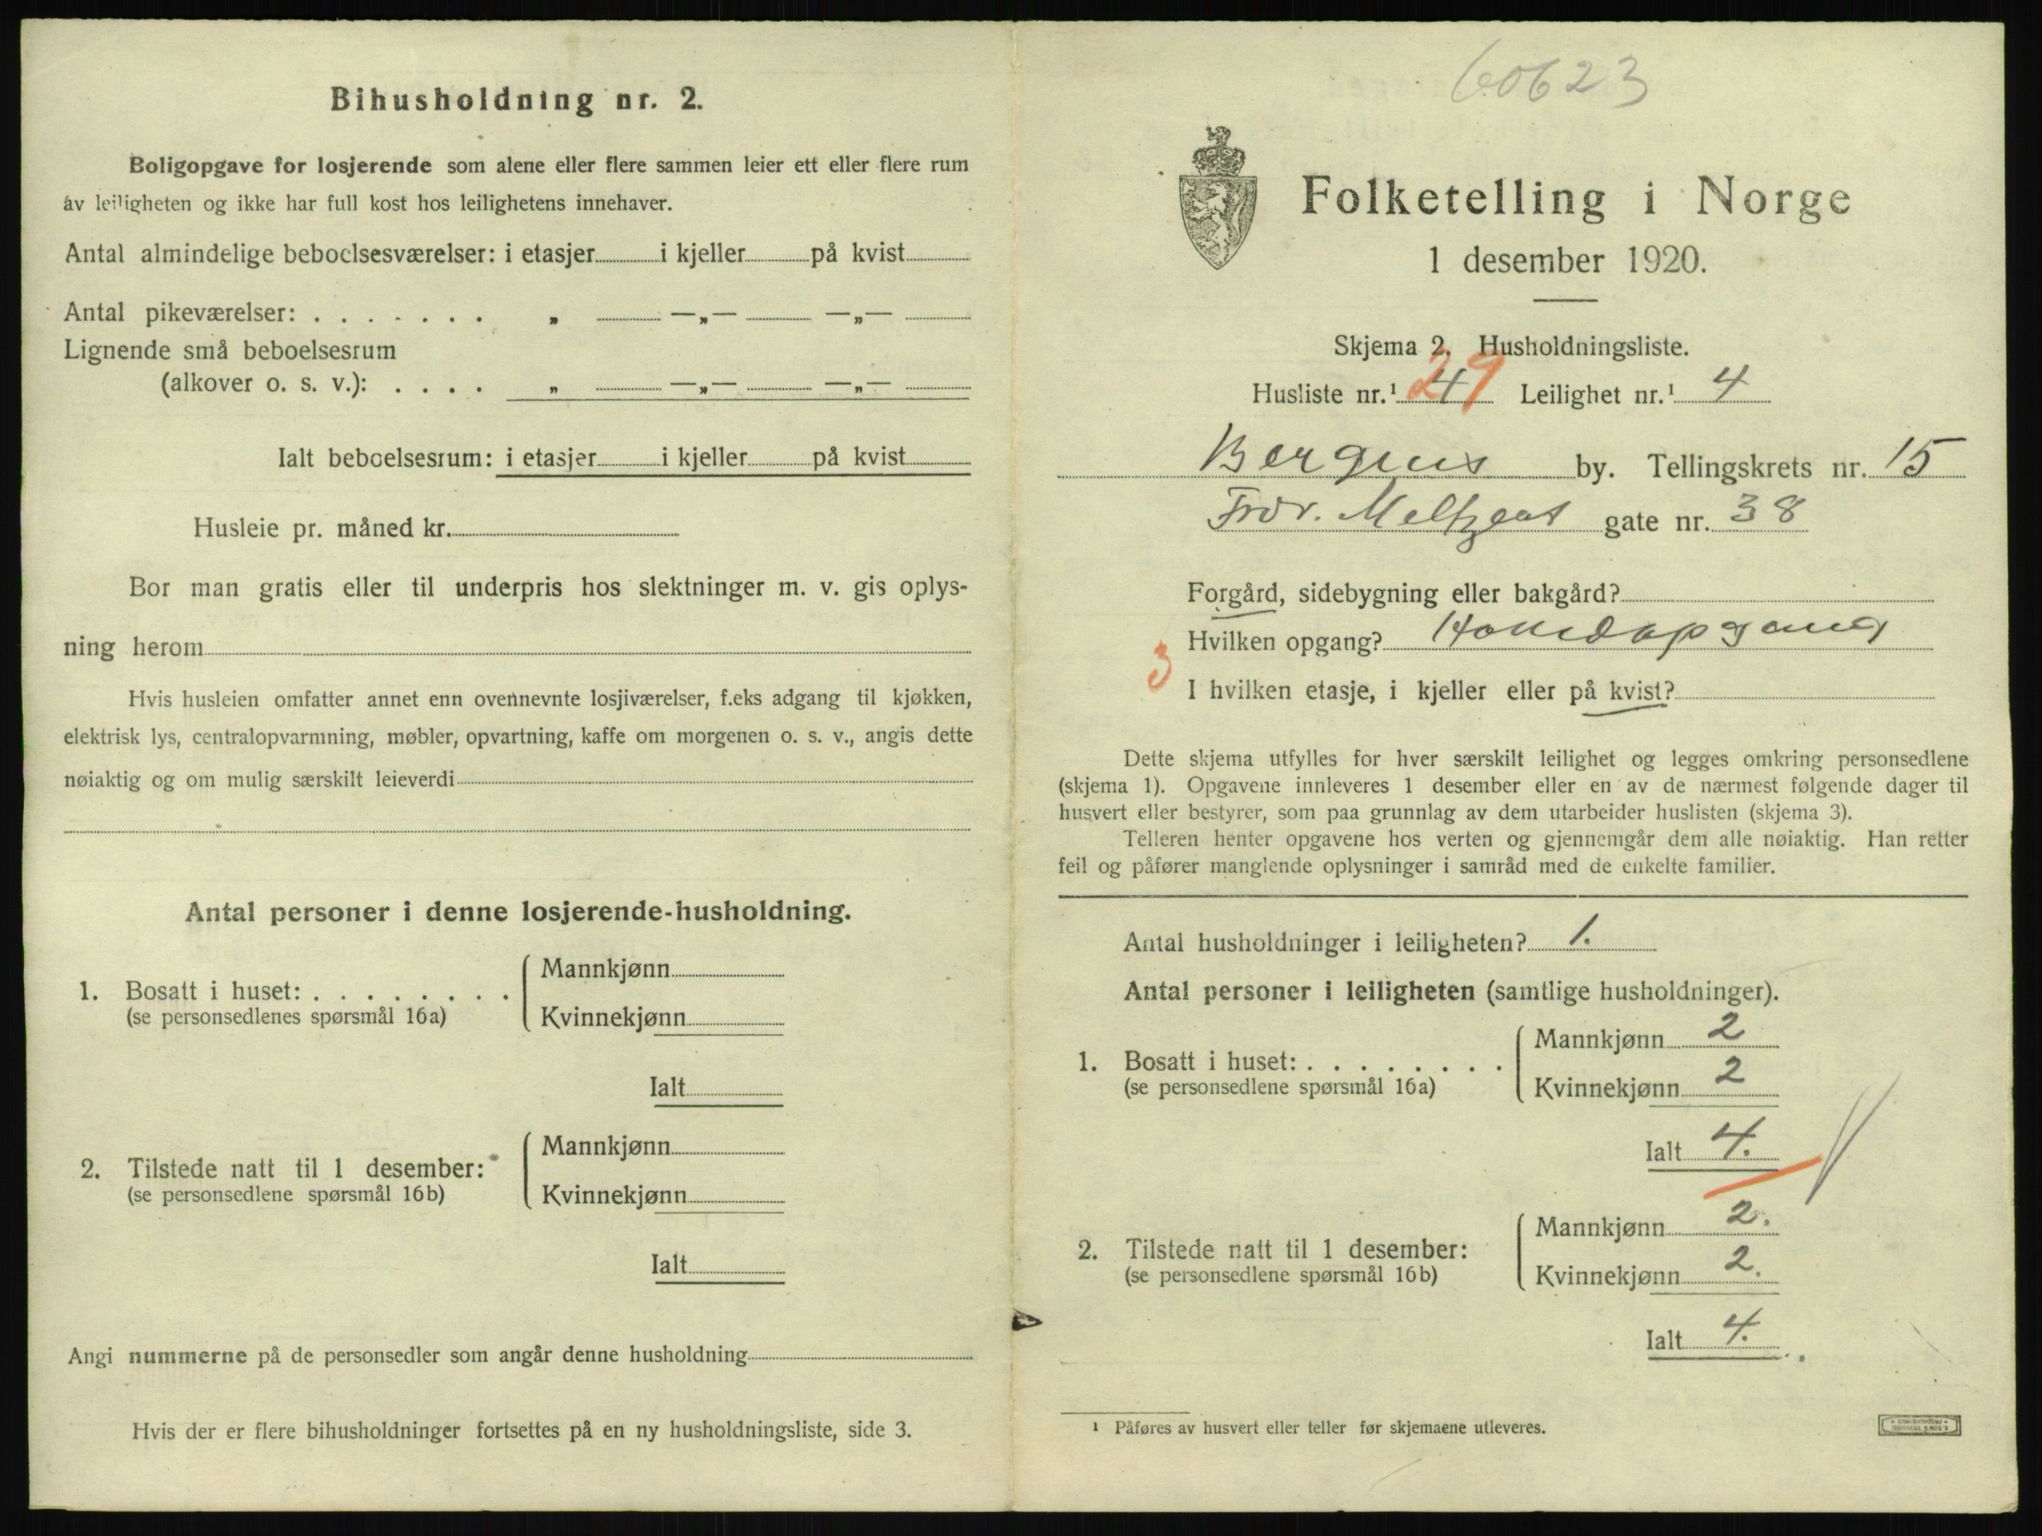 Bihusholdning nr. 2.
Boligopgave for losjerende som alene eller flere sammen leier ett eller flere rum
av leiligheten og ikke har full kost hos leilighetens innehaver.
Antal almindelige beboelsesværelser: i etasjer i kjeller på kvist
Antal pikeværelser: . . . . . . . „ —„— —„—
Lignende små beboelsesrum
(alkover o. s. v.): . . . . „ —„— —„—
Ialt beboelsesrum: i etasjer i kjeller på kvist
Husleie pr. måned kr.
Bor man gratis eller til underpris hos slektninger m. v. gis oplys-
ning herom
Hvis husleien omfatter annet enn ovennevnte losjiværelser, f.eks adgang til kjøkken,
elektrisk lys, centralopvarmning, møbler, opvartning, kaffe om morgenen o. s. v., angis dette
nøiaktig og om mulig særskilt leieverdi
Antal personer i denne losjerende-husholdning.
1. Bosatt i huset: . . . . . . . .
(se personsedlenes spørsmål 16a)
Mannkjønn
Kvinnekjønn
Ialt
2. Tilstede natt til 1 desember:
(se personsedlene spørsmål 16b)
Mannkjønn
Kvinnekjønn
Ialt
Angi nummerne på de personsedler som angår denne husholdning
Hvis der er flere bihusholdninger fortsettes på en ny husholdningsliste, side 3.
60623
Folketelling i Norge
1 desember 1920.
Skjema 2. Husholdningsliste.
Husliste nr.¹ 4 29 Leilighet nr.¹ 4
Bergens by. Tellingskrets nr. 15
Fredr. Meltzers gate nr. 38
Forgård, sidebygning eller bakgård?
Hvilken opgang? Hovedopgang
3 I hvilken etasje, i kjeller eller på kvist?
Dette skjema utfylles for hver særskilt leilighet og legges omkring personsedlene
(skjema 1). Opgavene innleveres 1 desember eller en av de nærmest følgende dager til
husvert eller bestyrer, som paa grunnlag av dem utarbeider huslisten (skjema 3).
Telleren henter opgavene hos verten og gjennemgår dem alle nøiaktig. Han retter
feil og påfører manglende oplysninger i samråd med de enkelte familier.
Antal husholdninger i leiligheten? 1.
Antal personer i leiligheten (samtlige husholdninger).
1. Bosatt i huset: . . . . . . . .
(se personsedlene spørsmål 16a)
Mannkjønn 2
Kvinnekjønn 2
Ialt 4.
2. Tilstede natt til 1 desember:
(se personsedlene spørsmål 16b)
Mannkjønn 2.
Kvinnekjønn 2.
Ialt 4.
¹ Påføres av husvert eller teller før skjemaene utleveres.